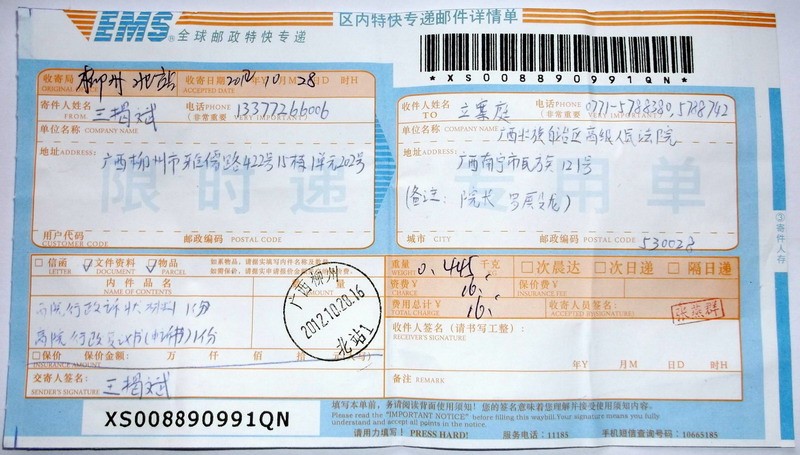 EMS® 全球邮政特快专递
区内特快专递邮件详情单
*XS008890991QN*
收寄局 柳州北站 收寄日期 2012年Y 10月M 28日D 时H
ORIGINAL OFFICE ACCEPTED DATE
寄件人姓名 电话PHONE 13377266006
FROM (非常重要 VERY IMPORTANT)
单位名称 COMPANY NAME
地址ADDRESS: 广西柳州市雅儒路422号15栋1单元202号
用户代码 邮政编码 POSTAL CODE
CUSTOMER CODE
收件人姓名 立案庭 电话PHONE 0771-5788380,5788742
TO (非常重要 VERY IMPORTANT)
单位名称 COMPANY NAME 广西壮族自治区高级人民法院
地址ADDRESS: 广西南宁市民族 121号
(备注: 院长 罗殿龙)
城市 CITY 邮政编码 POSTAL CODE 530028
限时递 专用单
③寄件人存
□信函 文件资料 物品 如系物品,请据实填写内件名称及数量。
LETTER DOCUMENT PARCEL 如需保价,请据实申请报价金额
内件品名
NAME OF CONTENTS AMOUNT
行政诉状材料 1份
1份
□保价 保价金额: 万 仟 佰 拾 元
INSURANCE AMOUNT
交寄人签名:
SENDER'S SIGNATURE
广西柳州
2012.10.28.16
北站1
重量 0.445 千克
WEIGHT
资费¥ 16. 保价费¥
CHARGE INSURANCE FEE
费用总计¥ 16. 收寄人员签名:
TOTAL ACCEPTED BY(SIGNATURE)
□次晨达 □次日递 □隔日递
收件人签名 (请书写工整):
RECEIVER'S SIGNATURE
年Y 月M 日D 时H
备注 REMARK
XS008890991QN
填写本单前,务请阅读背面使用须知!您的签名意味着您理解并接受使用须知内容。
Please read the "IMPORTANT NOTICE" before filling this waybill.Your signature means you fully
understand and accept all points in the notice.
请用力填写! PRESS HARD! 服务电话: 11185 手机短信查询号码: 10665185